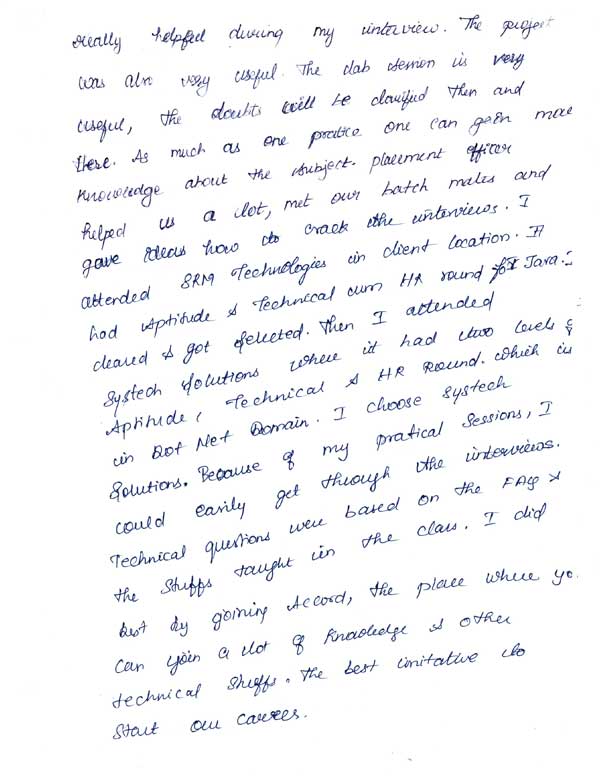 really helpful during my interview. The project
was also very useful. The lab session is very
useful, the doubts will be clarified then and
there. As much as one pratice one can gain more
knowledge about the subject. placement officer
helped us a lot, met our batch mates and
gave ideas how to crack the interviews. I
attended SRM Technologies in client location. It
had Aptitude & Technical cum HR round for Java. I
cleared & got selected. Then I attended
Systech Solutions where it had two levels of
Aptitude, Technical & HR Round. which is
in Dot Net Domain. I choose Systech
Solutions. Because of my pratical Sessions, I
could easily get through the interviews.
Technical questions were based on the FAQ &
the stuffs taught in the class. I did
best by joining Accord, the place where yo
can gain a lot of knowledge & other
technical stuffs. The best initative to
start our career.